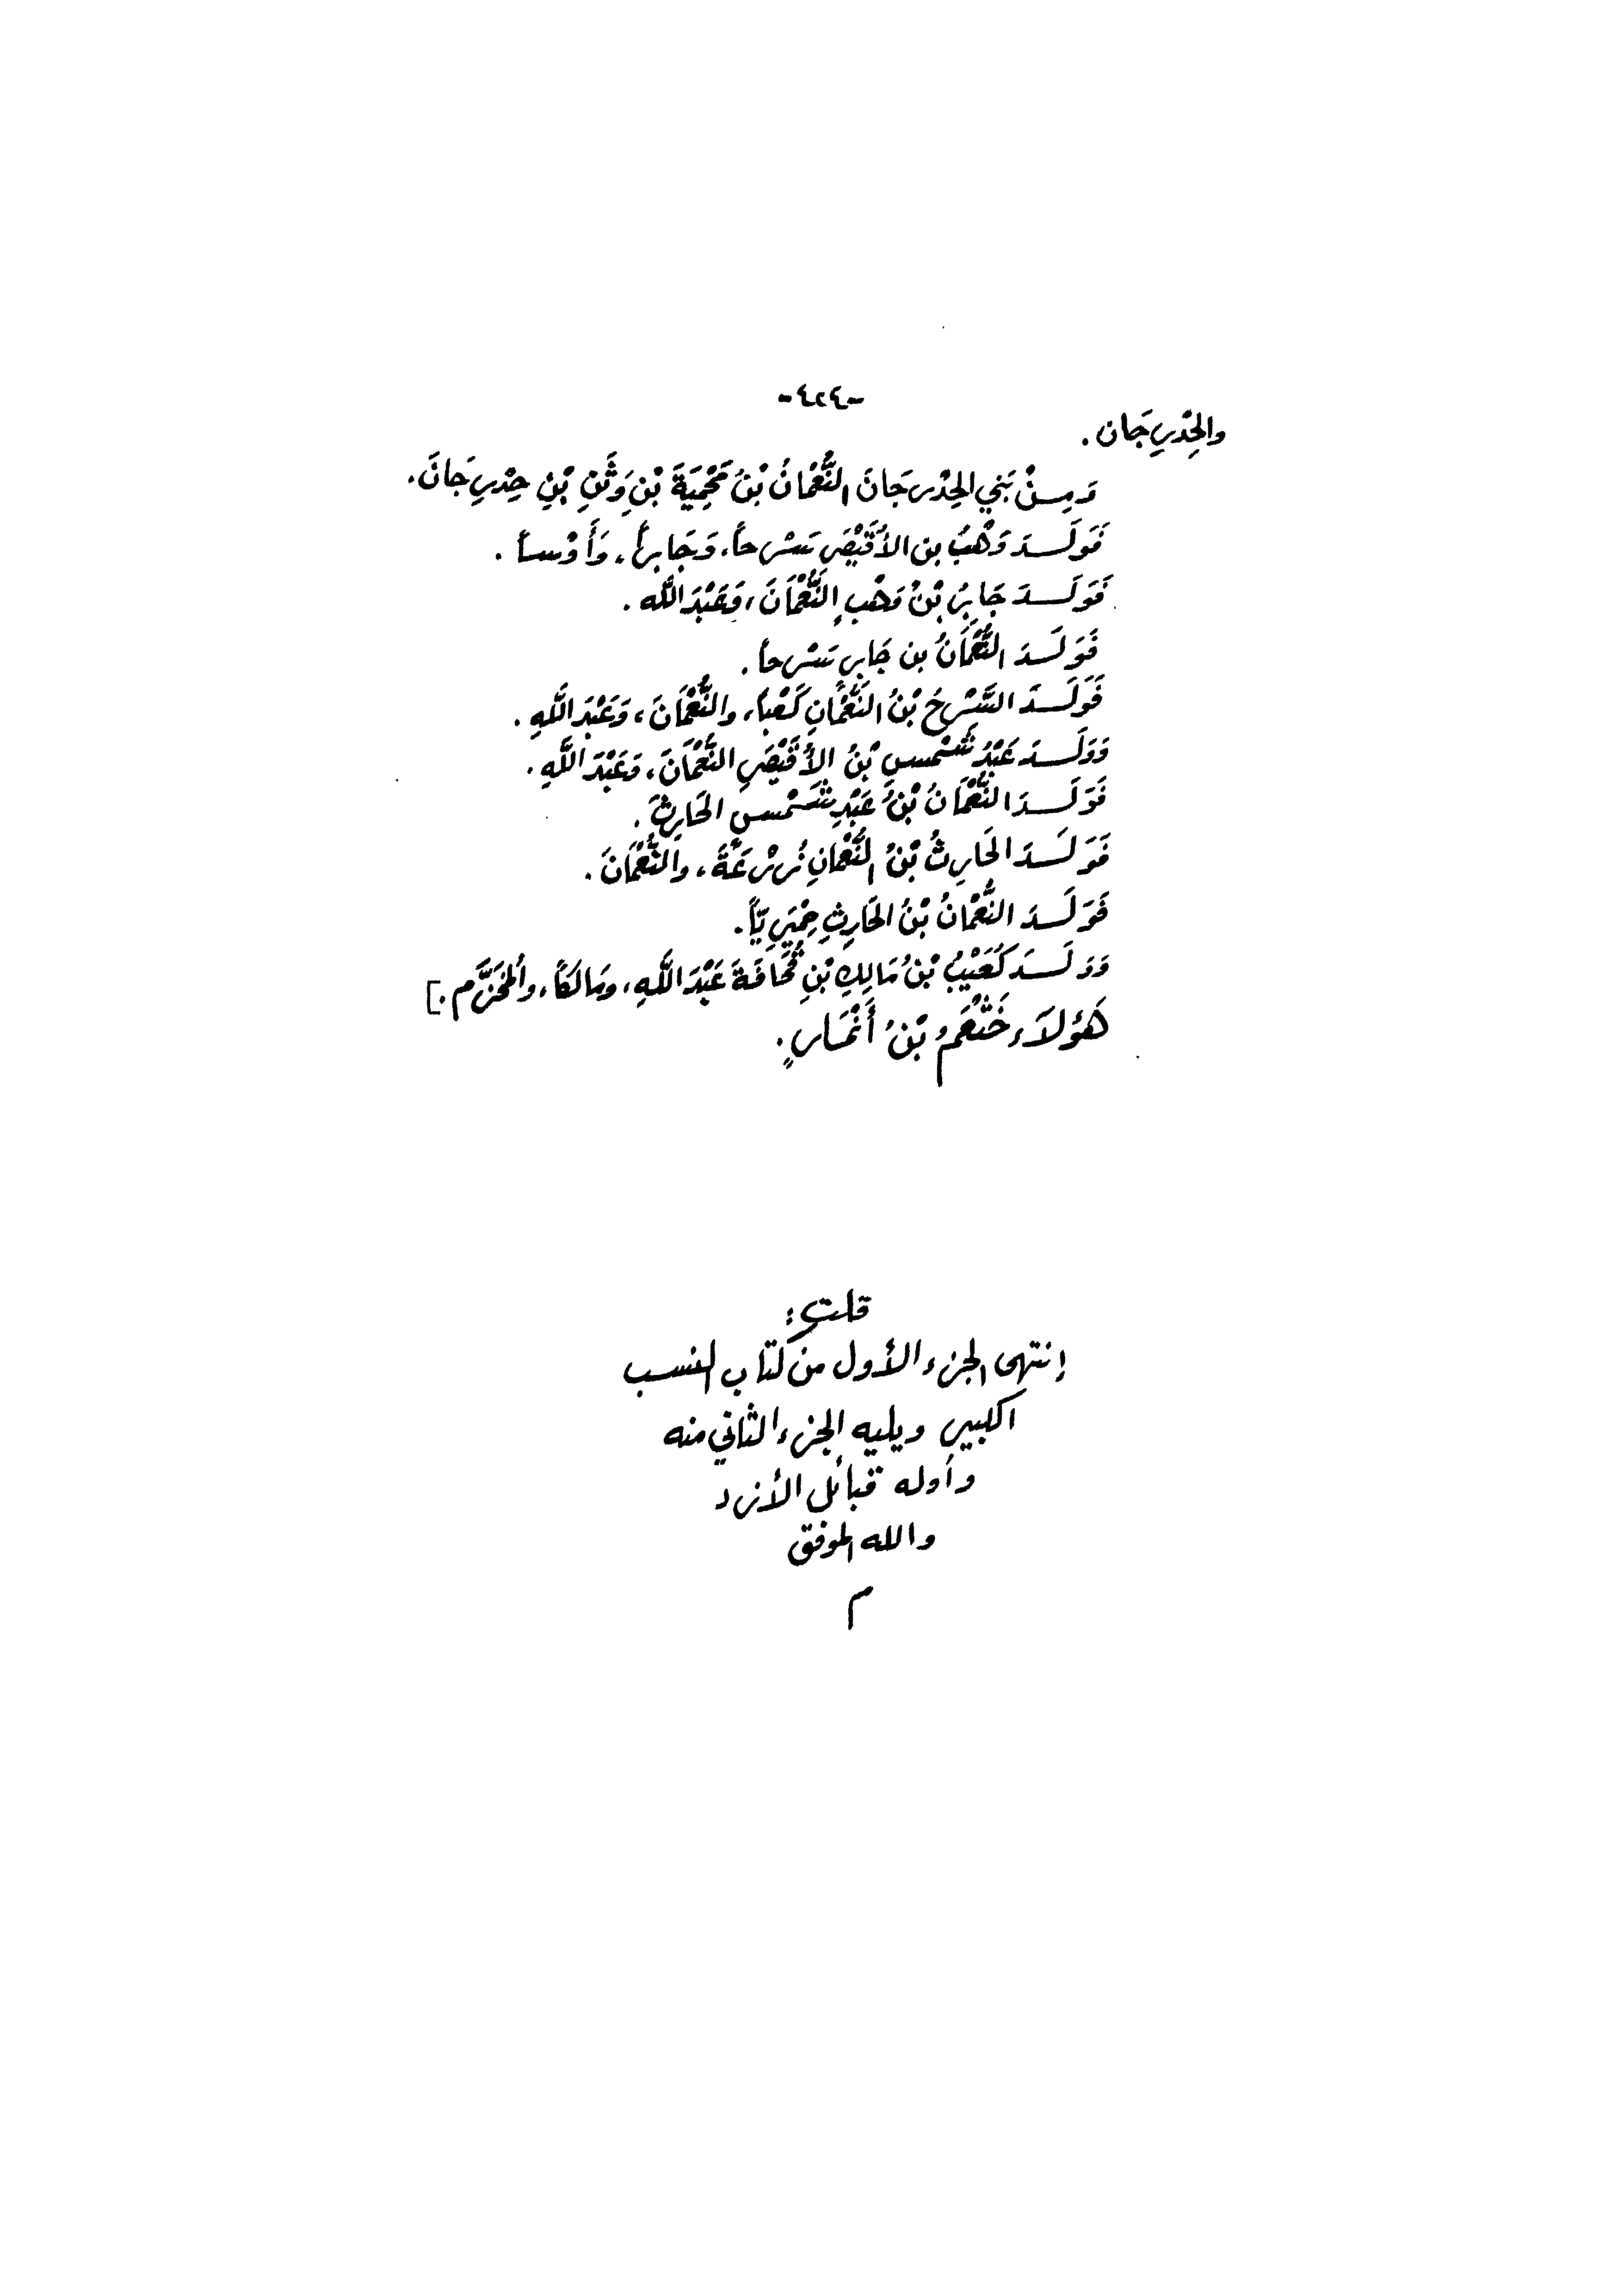 -٤٢٤-
والحِدْرِجَان .
وَمِنْ بَنِي الحِدْرِجَانَ النُّعْمَانُ بْنُ مَحْمِيَةَ بْنِ وَثَنِ بْنِ حِدْرِجَانَ.
فَوَلَدَ وَهْبُ بن الأُقَيْصِرِ سَرْحاً، وَجَابِراً، وَأَوْساً .
فَوَلَدَ جَابِرُ بْنُ وَهْبٍ النُّعْمَانَ، وَعَبْدَ اللّه .
فَوَلَدَ النُّعْمَانُ بن جَابِرٍ سَرْحاً .
فَوَلَدَ السَّرْحُ بْنُ النُّعْمَانِ كَعْباً، والنُّعْمَانَ، وَعَبْدَ اللَّهِ .
وَوَلَدَ عَبْدُ شَمْسِ بْنُ الأُقَيْصِرِ النُّعْمَانَ، وَعَبْدَ اللَّهِ .
فَوَلَدَ النُّعْمَانُ بْنُ عَبْدِ شَمْسٍ الحَارِثَ .
فَوَلَدَ الحَارِثُ بْنُ النُّعْمَانِ زُرْعَةَ، والنُّعْمَانَ .
فَوَلَدَ النُّعْمَانُ بْنُ الحَارِثِ حِمْيَرِيّاً.
وَوَلَدَ كُعَيْبُ بْنُ مَالِكِ بْنِ قُحَافَةَ عَبْدَ اللَّهِ، ومَالكاً، والمُخَزَّم .]
هَؤُلاَء خَثْعَمُ بْنُ أَنْمَارٍ .
قلت :
إنتهى الجزء الأول من كتاب النسب
الكبير ويليه الجزء الثاني منه
وأوله قبائل الأزد
والله الموفق
م